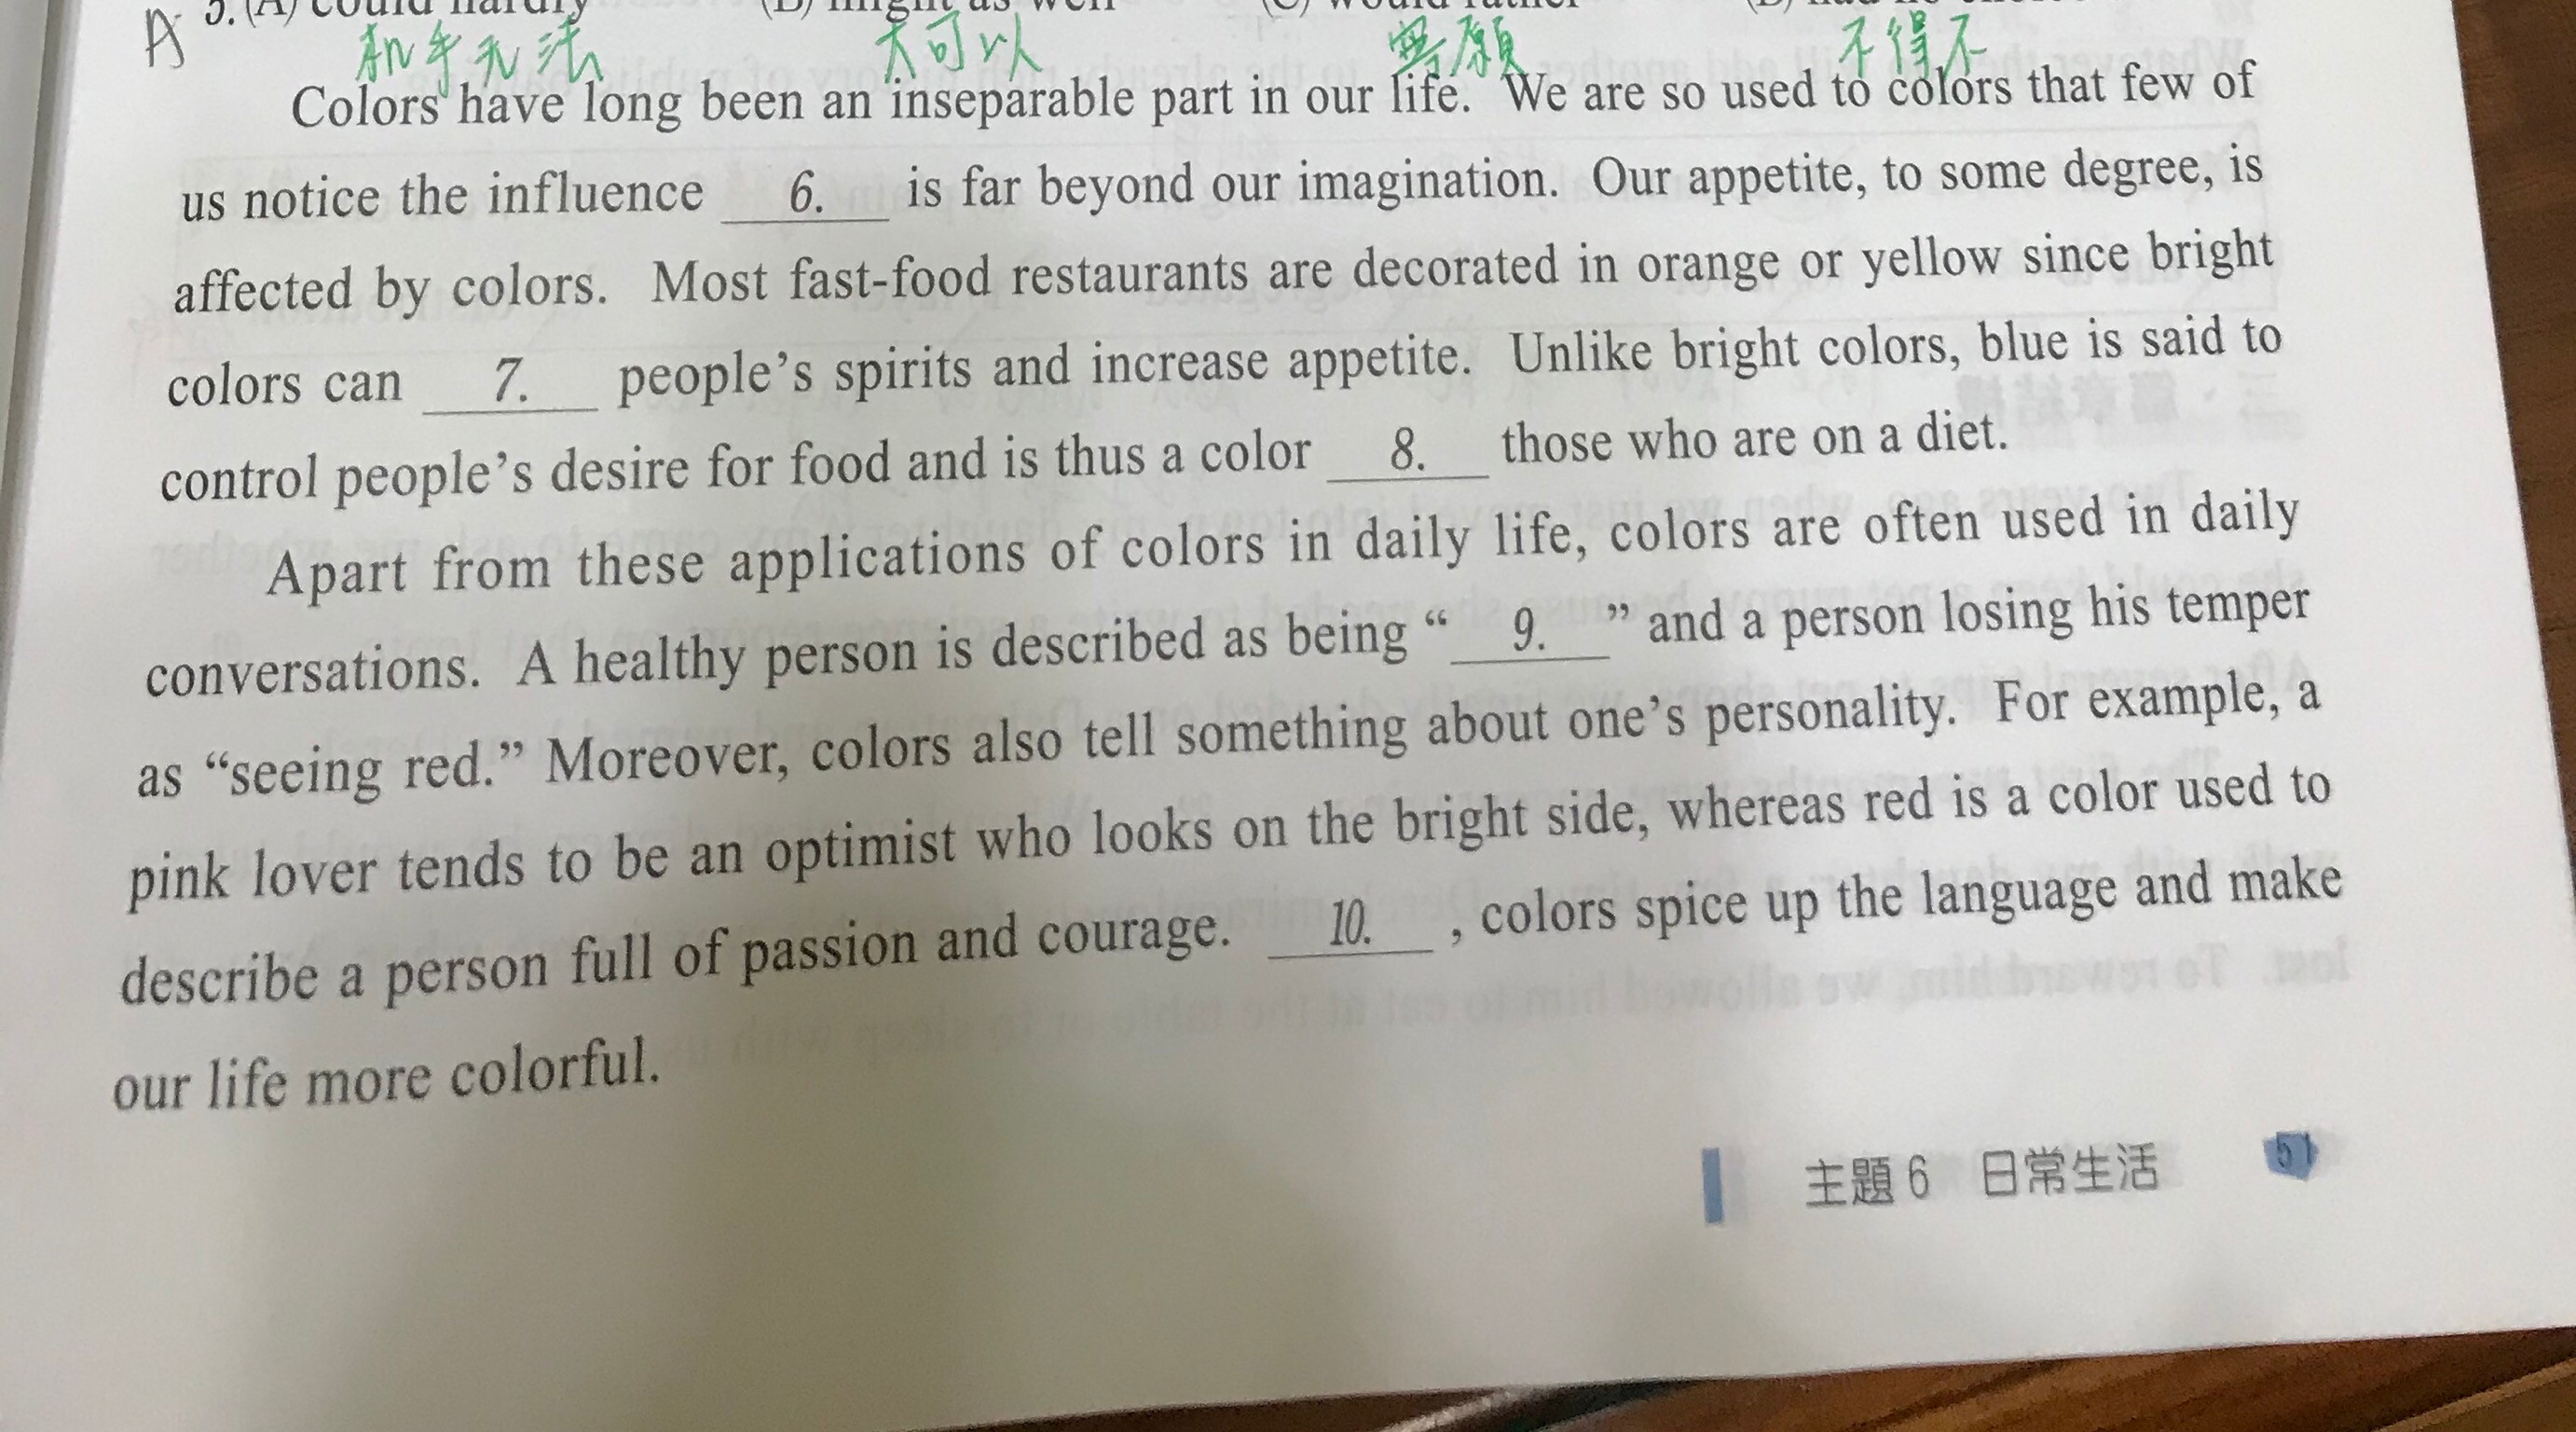 A 5. (A) could hardly (B) might as well (C) would rather
幾乎无法 大可以 寧願 不得不
Colors have long been an inseparable part in our life. We are so used to colors that few of
us notice the influence 6. is far beyond our imagination. Our appetite, to some degree, is
affected by colors. Most fast-food restaurants are decorated in orange or yellow since bright
colors can 7. people's spirits and increase appetite. Unlike bright colors, blue is said to
control people's desire for food and is thus a color 8. those who are on a diet.
Apart from these applications of colors in daily life, colors are often used in daily
conversations. A healthy person is described as being “ 9. ” and a person losing his temper
as “seeing red.” Moreover, colors also tell something about one's personality. For example, a
pink lover tends to be an optimist who looks on the bright side, whereas red is a color used to
describe a person full of passion and courage. 10. , colors spice up the language and make
our life more colorful.
主題6 日常生活 51